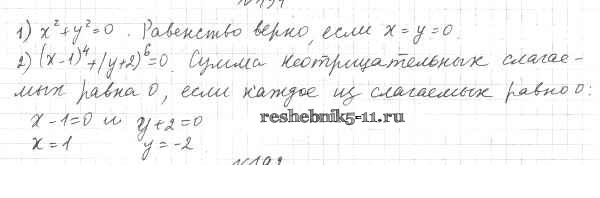 1) x²+y²=0. Равенство верно, если x=y=0.
2) (x-1)⁴+(y+2)⁶=0. Сумма неотрицательных слагае-
мых равна 0, если каждое из слагаемых равно 0:
x-1=0 и y+2=0
reshebnik5-11.ru
x=1 y=-2